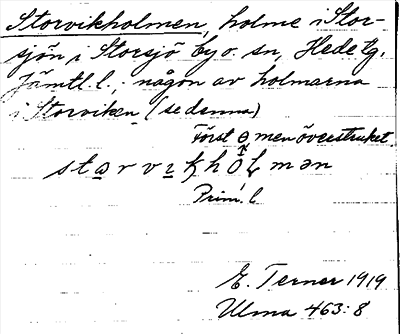 Storvikholmen, holme i Stor-
sjön i Storsjö by o. sn, Hede tg,
Jämtl. l.; någon av holmarna
i Storviken (se denna)
Först ɵ men överstruket.
starvɪkhólmən
Prim. l
E. Terner 1919
Ulma 463:8